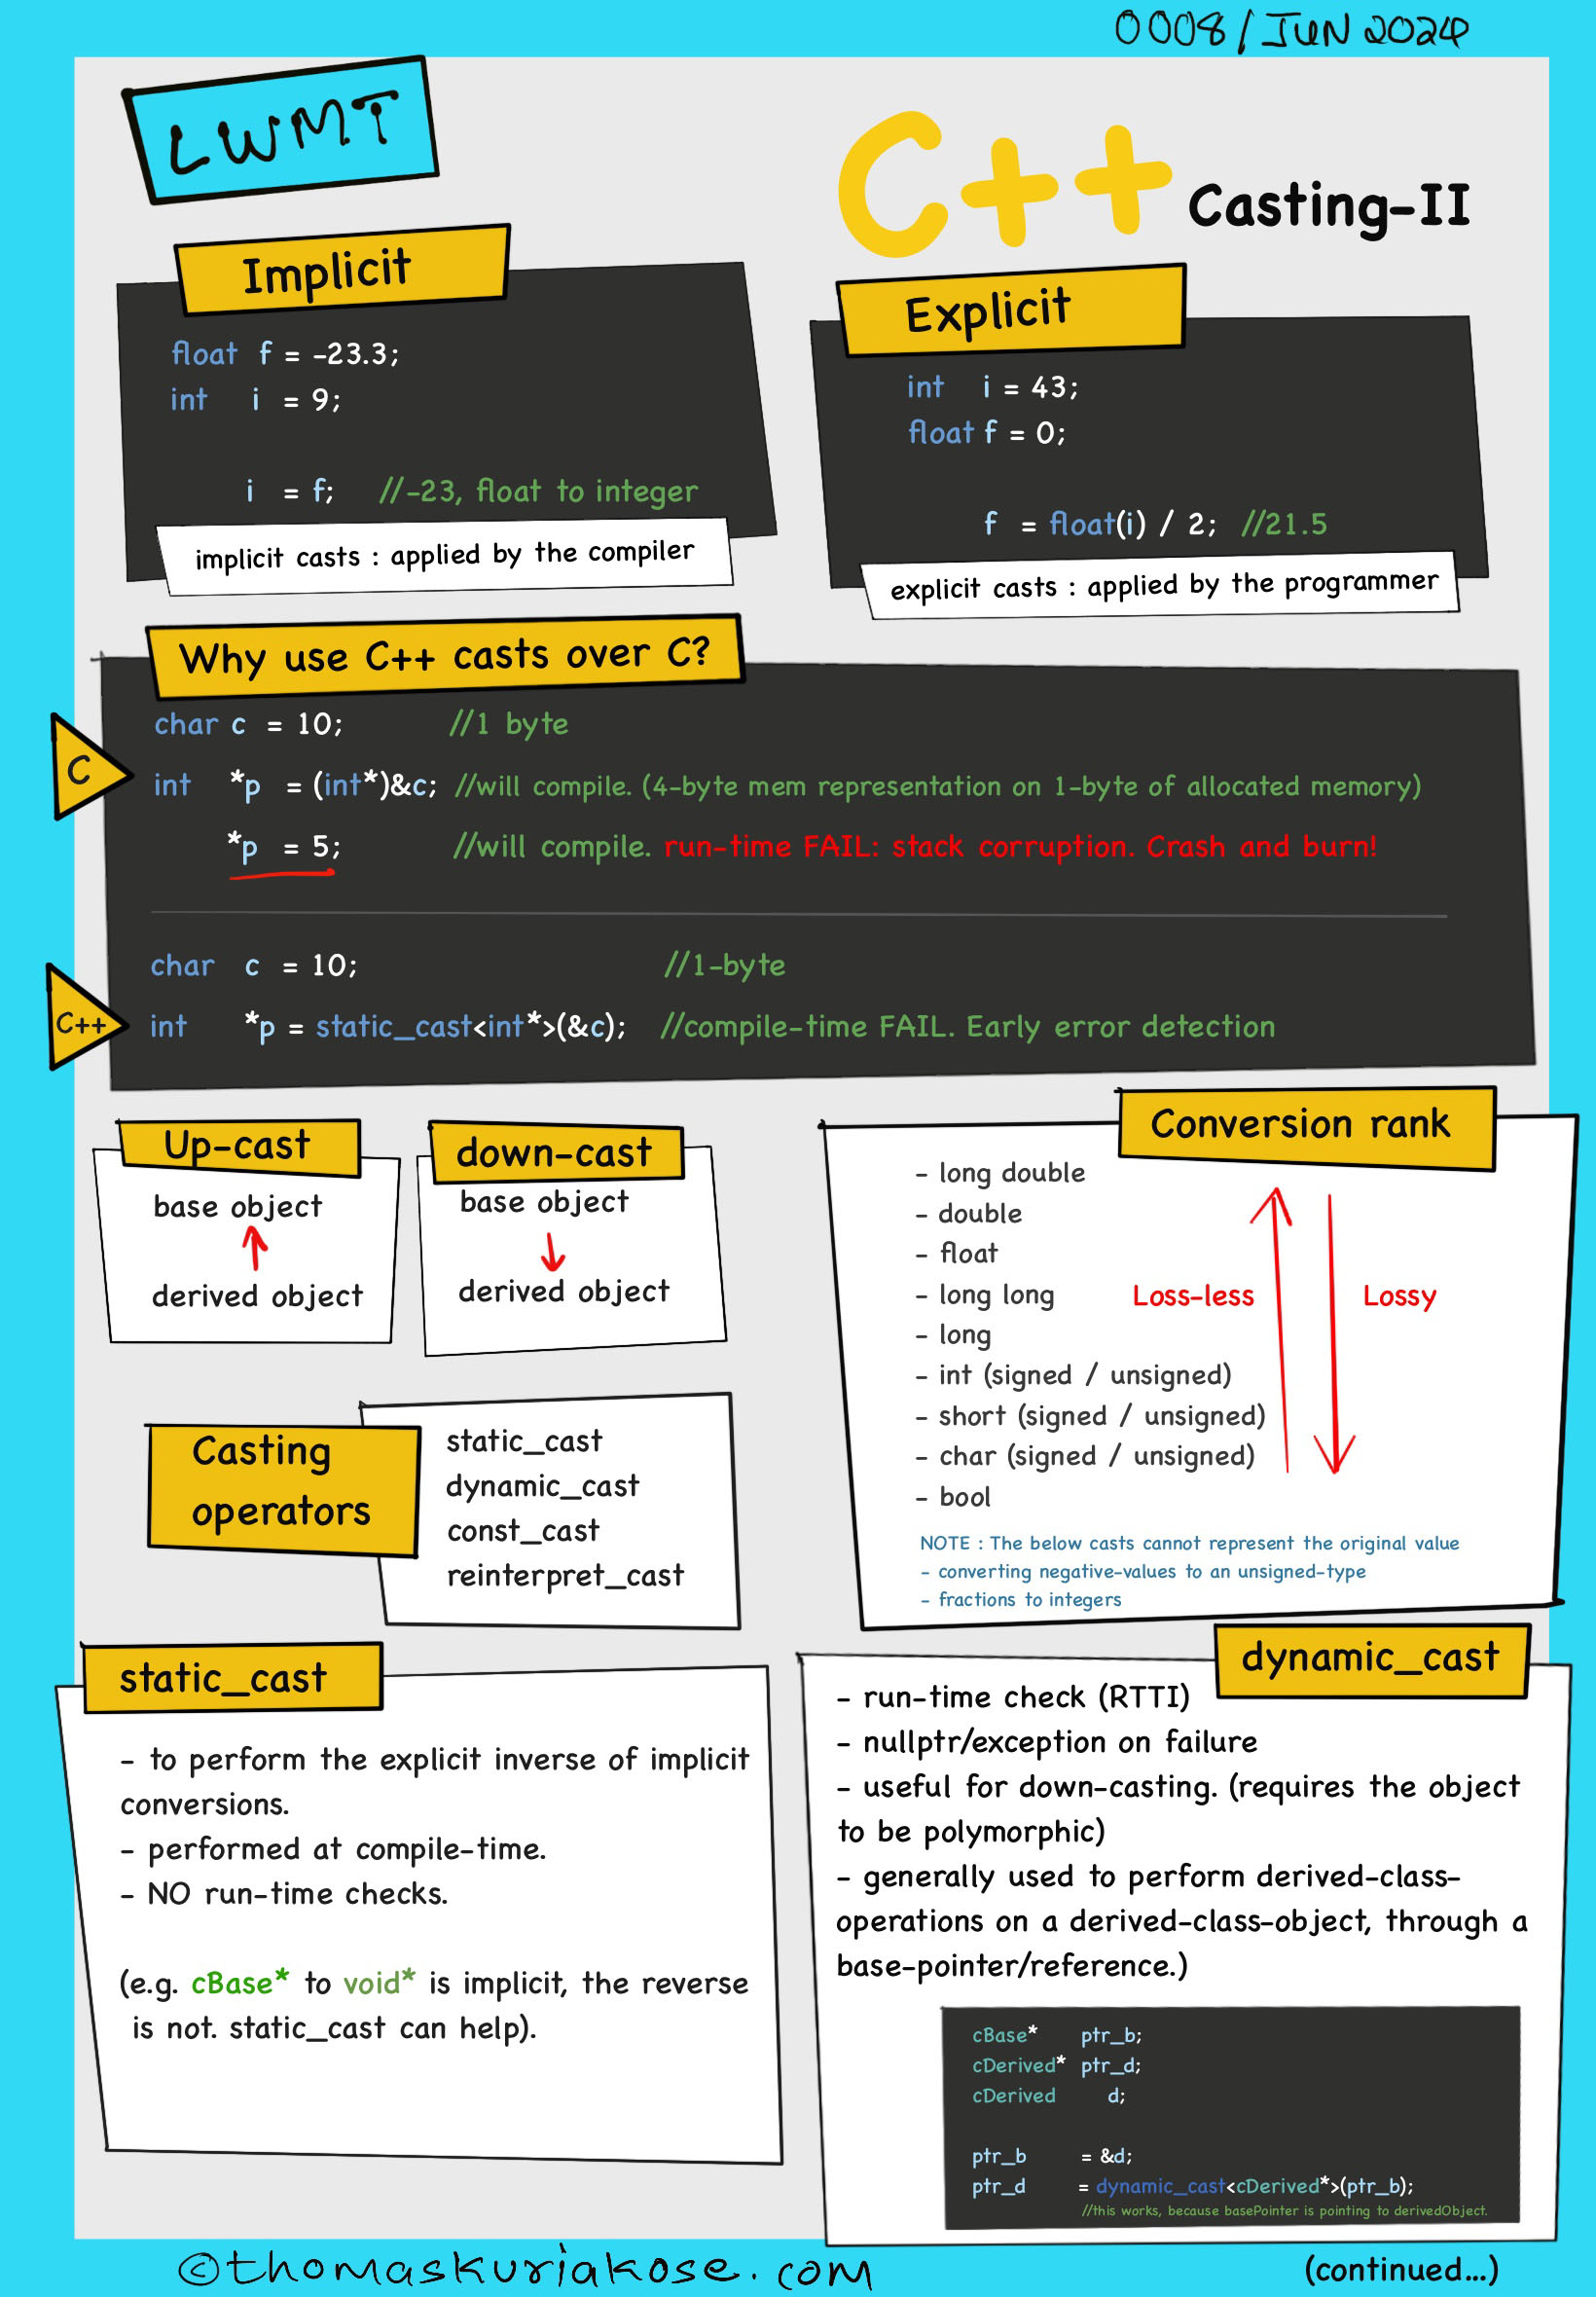 0008/JUN 2024
LWMT
C++ Casting-II
Implicit
float f = -23.3;
int i = 9;
i = f; //-23, float to integer
implicit casts : applied by the compiler
Explicit
int i = 43;
float f = 0;
f = float(i) / 2; //21.5
explicit casts : applied by the programmer
Why use C++ casts over C?
C
char c = 10; //1 byte
int *p = (int*)&c; //will compile. (4-byte mem representation on 1-byte of allocated memory)
*p = 5; //will compile. run-time FAIL: stack corruption. Crash and burn!
C++
char c = 10; //1-byte
int *p = static_cast<int*>(&c); //compile-time FAIL. Early error detection
Up-cast
base object
derived object
down-cast
base object
derived object
Conversion rank
- long double
- double
- float
- long long
- long
- int (signed / unsigned)
- short (signed / unsigned)
- char (signed / unsigned)
- bool
Loss-less
Lossy
NOTE : The below casts cannot represent the original value
- converting negative-values to an unsigned-type
- fractions to integers
Casting
operators
static_cast
dynamic_cast
const_cast
reinterpret_cast
static_cast
- to perform the explicit inverse of implicit
conversions.
- performed at compile-time.
- NO run-time checks.
(e.g. cBase* to void* is implicit, the reverse
is not. static_cast can help).
dynamic_cast
- run-time check (RTTI)
- nullptr/exception on failure
- useful for down-casting. (requires the object
to be polymorphic)
- generally used to perform derived-class-
operations on a derived-class-object, through a
base-pointer/reference.)
cBase* ptr_b;
cDerived* ptr_d;
cDerived d;
ptr_b = &d;
ptr_d = dynamic_cast<cDerived*>(ptr_b);
//this works, because basePointer is pointing to derivedObject.
©thomaskuriakose.com
(continued...)